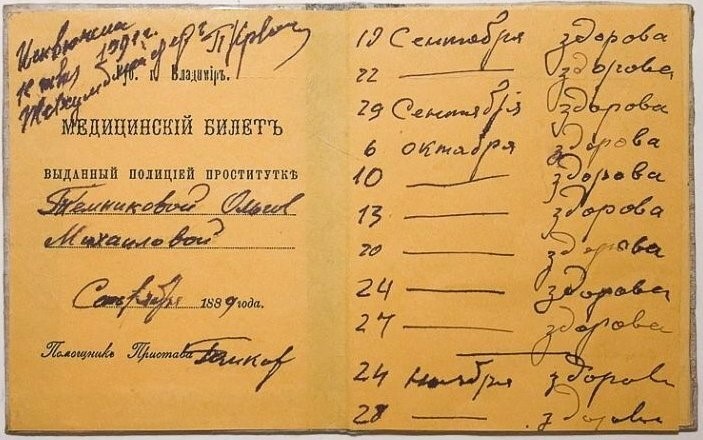 Губ. г. Владиміръ.
МЕДИЦИНСКІЙ БИЛЕТЪ
ВЫДАННЫЙ ПОЛИЦІЕЙ ПРОСТИТУТКѢ
Темниковой Ольге
Михаиловой
Сентября 1889 года.
Помощникъ Пристава
19 Сентября здорова
22 — здорова
29 Сентября здорова
6 октября здорова
10 — здорова
13 — здорова
20 — здорова
24 — здорова
27 — здорова
24 ноября здорова
28 — здорова